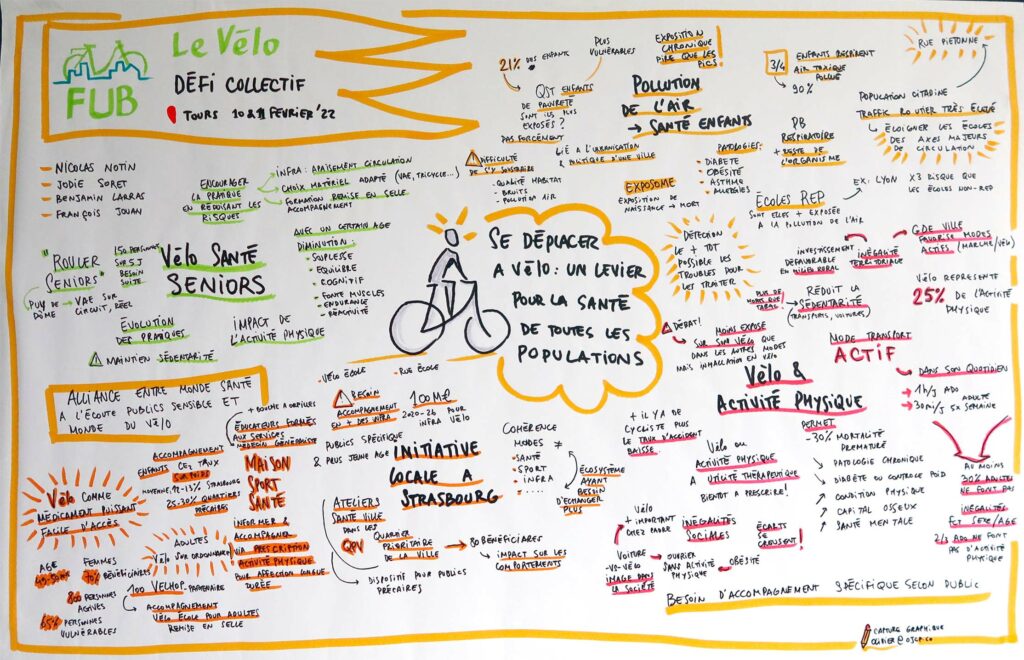 FUB
Le Vélo
DÉFI COLLECTIF
TOURS 10&11 FÉVRIER '22
NICOLAS NOTIN
JODIE SORET
BENJAMIN LARRAS
FRANÇOIS JOUAN
ENCOURAGER
LA PRATIQUE
EN RÉDUISANT LES
RISQUES
INFRA : APAISEMENT CIRCULATION
CHOIX MATÉRIEL ADAPTÉ (VAE, TRICYCLE...)
FORMATION REMISE EN SELLE
ACCOMPAGNEMENT
"ROULER
SENIORS"
150 PERSONNES
SUR 5 J
BESOIN
SUITE
PUY DE
DÔME
VAE SUR
CIRCUIT, RÉEL
Vélo SANTÉ
SENIORS
AVEC UN CERTAIN AGE
DIMINUTION:
SOUPLESSE
EQUILIBRE
COGNITIF
FONTE MUSCLES
ENDURANCE
RÉACTIVITÉ
ÉVOLUTION
DES PRATIQUES
IMPACT DE
L'ACTIVITÉ PHYSIQUE
MAINTIEN SÉDENTARITÉ
21% DES ENFANTS
PLUS
VULNÉRABLES
EXPOSITION
CHRONIQUE
PIRE QUE LES
PICS!
QST ENFANTS
DE PAUVRETÉ
SONT ILS PLUS
EXPOSÉS ?
PAS FORCÉMENT
LIÉ A L'URBANISATION
& POLITIQUE D'UNE VILLE
DIFFICULTÉ
DE S'Y SOUSTRAIRE
QUALITÉ HABITAT
BRUITS
POLLUTION AIR
POLLUTION
DE L'AIR
→ SANTÉ ENFANTS
EXPOSOME
EXPOSITION DE
NAISSANCE → MORT
PATHOLOGIES:
DIABETE
OBÉSITÉ
ASTHME
ALLERGIES
3/4 ENFANTS RESPIRENT
AIR TOXIQUE
POLLUÉ
90%
PB
RESPIRATOIRE
+ RESTE DE
L'ORGANISME
RUE PIÉTONNE
POPULATION CITADINE
TRAFFIC ROUTIER TRÈS ÉLEVÉ
ÉLOIGNER LES ÉCOLES
DES AXES MAJEURS
DE CIRCULATION
ÉCOLES REP
SONT ELLES + EXPOSÉE
A LA POLLUTION DE L'AIR
EX: LYON X3 RISQUE QUE
LES ÉCOLES NON-REP
SE DÉPLACER
A VÉLO : UN LEVIER
POUR LA SANTÉ
DE TOUTES LES
POPULATIONS
DÉTECTION
LE + TOT
POSSIBLE LES
TROUBLES POUR
LES TRAITER
INVESTISSEMENT
DÉFAVORABLE
EN MILIEU RURAL
INÉGALITÉ
TERRITORIALE
GDE VILLE
FAVORISE MODES
ACTIFS (MARCHE/VÉLO)
PLUS DE
MORTS QUE
TABAC
RÉDUIT LA
SÉDENTARITÉ
(TRANSPORTS, VOITURES)
VÉLO REPRÉSENTE
25% DE L'ACTIVITÉ
PHYSIQUE
DÉBAT!
MOINS EXPOSÉ
SUR SON VÉLO QUE
DANS LES AUTRES MODES
MAIS INHALATION EN VÉLO
MODE TRANSPORT
ACTIF
Vélo &
ACTIVITÉ PHYSIQUE
DANS SON QUOTIDIEN
1h/j ADO
30min/j 5X SEMAINE
ADULTE
PERMET
-30% MORTALITÉ
PREMATURÉ
PATOLOGIE CHRONIQUE
DIABÈTE OU CONTROLE POID
CONDITION PHYSIQUE
CAPITAL OSSEUX
SANTÉ MENTALE
AU MOINS
30% ADULTES
NE FONT PAS
INÉGALITÉS
FCT SEXE/AGE
2/3 ADO NE FONT
PAS D'ACTIVITÉ
PHYSIQUE
ALLIANCE ENTRE MONDE SANTÉ
A L'ÉCOUTE PUBLICS SENSIBLE ET
MONDE DU VÉLO
VÉLO ÉCOLE
RUE ÉCOLE
BESOIN
ACCOMPAGNEMENT
EN + DES INFRA
100M€
2020-26 POUR
INFRA VÉLO
PUBLICS SPÉCIFIQUE
& PLUS JEUNE AGE
INITIATIVE
LOCALE A
STRASBOURG
+ BOUCHE A OREILLES
ÉDUCATEURS FORMÉS
AUX SERVICES
MÉDECIN GÉNÉRALISTE
ACCOMPAGNEMENT
ENFANTS CE2 TAUX
SURPOIDS
MOYENNE 12-13% STRASBOURG
25-30% QUARTIERS
PRÉCAIRES
MAISON
SPORT
SANTÉ
INFORMER &
ACCOMPAGNER
VIA PRESCRIPTION
ACTIVITÉ PHYSIQUE
POUR AFFECTION LONGUE
DURÉE
Vélo COMME
MÉDICAMENT PUISSANT
FACILE D'ACCÈS
ADULTES
VÉLO SUR ORDONNANCE
AGE
FEMMES
70% BÉNÉFICIAIRES
800 PERSONNES
ACTIVES
65% PERSONNES
VULNÉRABLES
100 VELHOP. PARTENAIRE
ACCOMPAGNEMENT
VÉLO ÉCOLE POUR ADULTES
REMISE EN SELLE
ATELIERS
SANTÉ VILLE
DANS LES
QPV
QUARTIER
PRIORITAIRE
DE LA VILLE
80 BÉNÉFICIAIRES
IMPACT SUR LES
COMPORTEMENTS
DISPOSITIF POUR PUBLICS
PRÉCAIRES
COHÉRENCE
MODES ≠
SANTÉ
SPORT
INFRA
.....
ÉCOSYSTÈME
AYANT
BESOIN
D'ÉCHANGER
PLUS
+ IL YA DE
CYCLISTE PLUS
LE TAUX D'ACCIDENT
BAISSE.
Vélo ou
ACTIVITÉ PHYSIQUE
A UTILITÉ THÉRAPEUTIQUE
BIENTOT A PRESCRIRE!
VÉLO
+ IMPORTANT
CHEZ CADRE
INÉGALITÉS
SOCIALES
ÉCARTS
SE
CREUSENT!
VOITURE
-VS-VÉLO
IMAGE DANS
LA SOCIÉTÉ
OUVRIER
SANS ACTIVITÉ
PHYSIQUE
OBÉSITÉ
BESOIN D'ACCOMPAGNEMENT SPÉCIFIQUE SELON PUBLIC
CAPTURE GRAPHIQUE